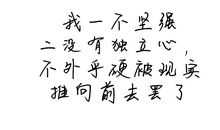 我一不坚强
二没有独立心,
不外乎硬被现实
推向前去罢了